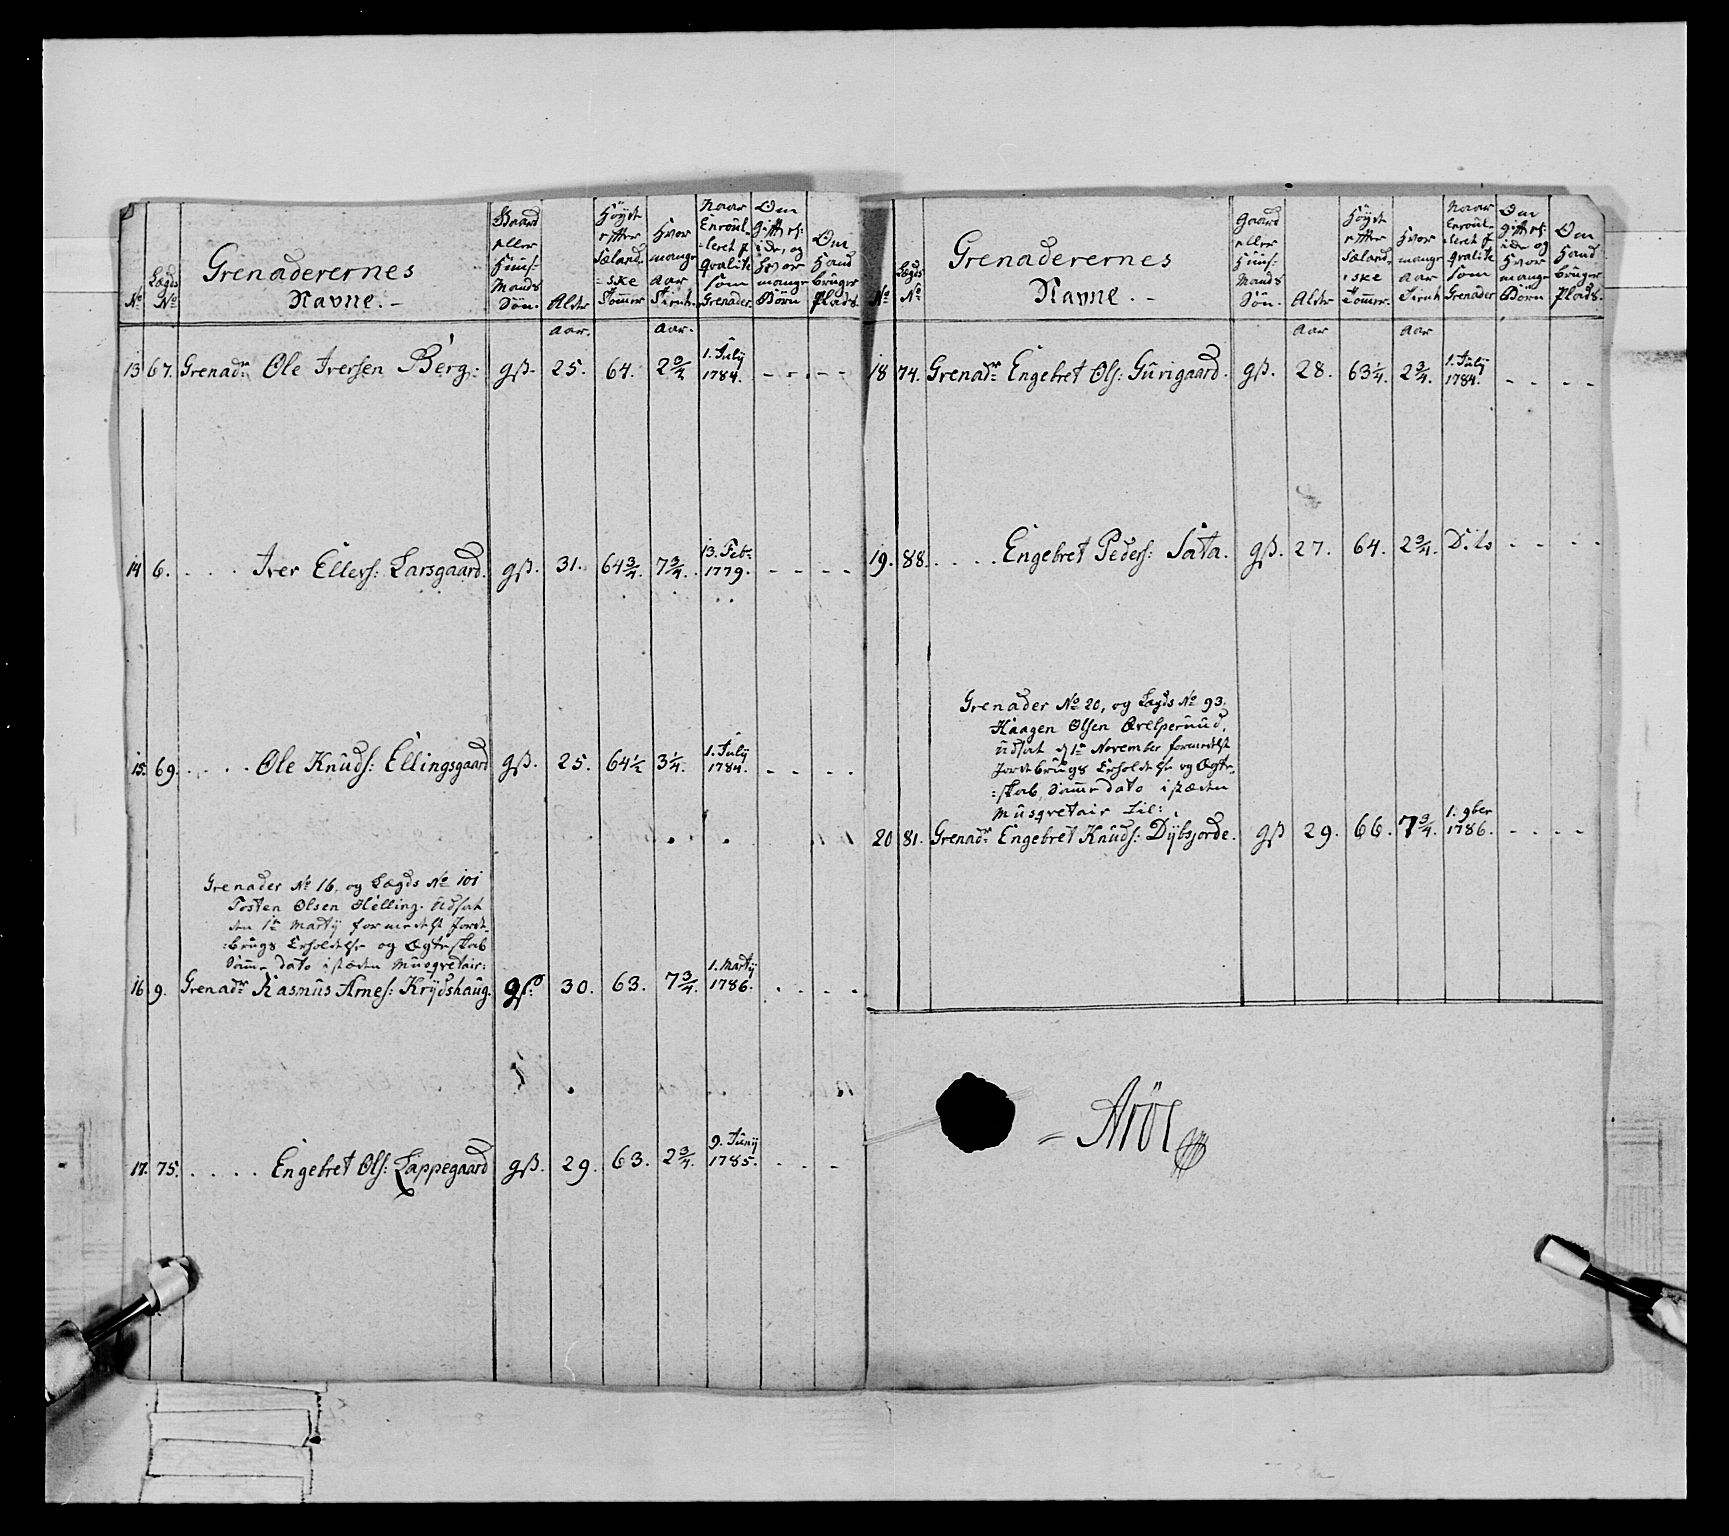 No
Lægds No
Grenaderernes
Navne. -
Gaard
eller
Huus:
Mands
Søn.
Alder
Høyde
efter
Sæland-
=ske
Tommer
Hvor
mange
Aar
Tient.
Naar
Enroul-
=leret p
Qvalite
som
Grenader.
Om
gift el:
ide, og
Hvor
mange
Børn
Om
Hand
bruger
Plads.
Aar.
Aar.
13 67. Grenadr Ole Iversen Berg: gß. 25. 64. 2 3/4 1. July 1784. - - - -
14 6. . . . . Iver Ellefs: Larsgaard. gß. 31. 64 3/4. 7 3/4. 13. Febr 1779. - - - -
15. 69. . . . . Ole Knuds: Ellingsgaard gß. 25. 64 1/2 3 1/4. 1. July 1784. - - - -
Grenader No 16, og Lægds No 101
Tosten Olsen Helling. Udsat
den 1te Marty formedelst Jorde-
=brugs Erholdelse og Ægteskab
Samme dato isteden Musqvetair:
16 9. Grenadr Rasmus Arnes: Krydshaug. gß. 30. 63. 7 3/4. 1. Marty 1786. . - - -
17. 75. . . . . Engebret Ols: Lappegaard gß. 29. 63. 2 3/4. 9. Juny 1785. . . -
No
Lægds No
Grenaderernes
Navne. -
Gaard
eller
Huus:
Mands
Søn.
Alder
Høyde
efter
Sæland,
=ske
Tommer.
Hvor
mange
Aar
Tient
Naar
Enroul-
=leret p
Qvalite
som
Grenader
Om
gift el:
ide og
Hvor
mange
Børn
Om
Hand
bruger
Plads.
Aar
Aar
18 74. Grenadr Engebret Ols: Gurigaard. gß. 28. 63 1/4. 2 3/4. 1. July 1784. - - - -
19. 88. . . . . Engebret Peders: Sata. gß. 27. 64. 2 3/4. Dito - - - -
Grenader No 20, og Lægds No 93.
Haagen Olsen Qvelpernud,
udsat d 1te November formedelst
Jordebrugs Erholdelse og Ægte,
=skab, Samme dato isteden
Musqvetair til:
20 81. Grenadr Engebret Knuds: Dybsjorde. gß 29. 66. 7 3/4. 1. 9ber 1786. - - - -